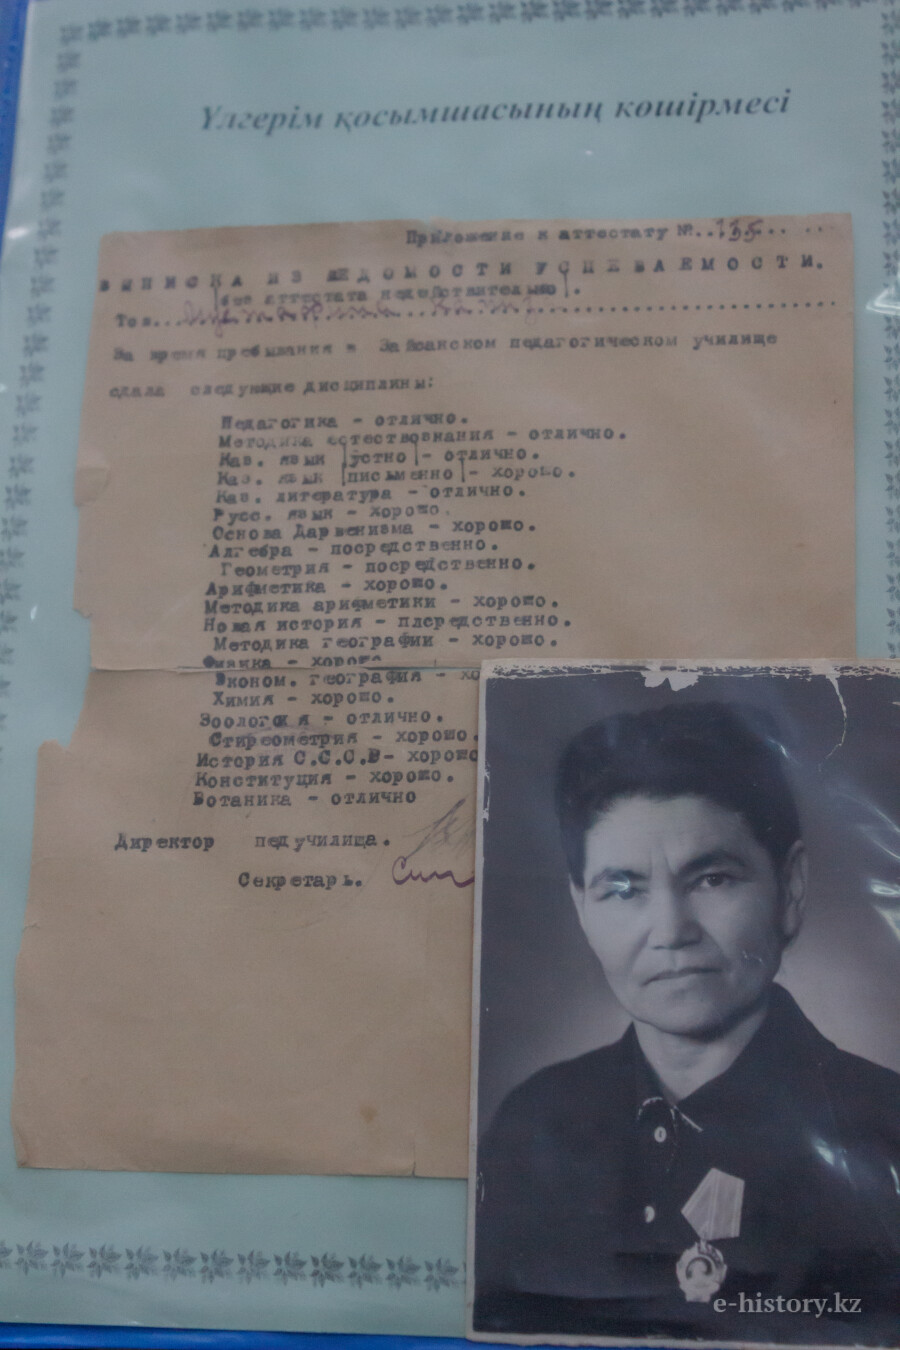 Үлгерім қосымшасының көшірмесі
Приложение к аттестату №..155....
ВЫПИСКА ИЗ ВЕДОМОСТИ УСПЕВАЕМОСТИ.
|без аттестата недействительно|.
Тов...
За время пребывания в Зайсанском педагогическом училище
сдала следующие дисциплины:
Педагогика - отлично.
Методика естествознания - отлично.
Каз. язык |устно|- отлично.
Каз. язык |письменно|- хорошо.
Каз. литература - отлично.
Русс. язык - хорошо.
Основа Дарвенизма - хорошо.
Алгебра - посредственно.
Геометрия - посредственно.
Арифметика - хорошо.
Методика арифметики - хорошо.
Новая история - плсредственно.
Методика географии - хорошо.
Физика - хорошо
Эконом. география - хо
Химия - хорошо.
Зоология - отлично.
Стиреометрия - хорошо.
История С.С.С.Р- хорошо
Конституция - хорошо.
Ботаника - отлично
Директор педучилища.
Секретарь.
e-history.kz